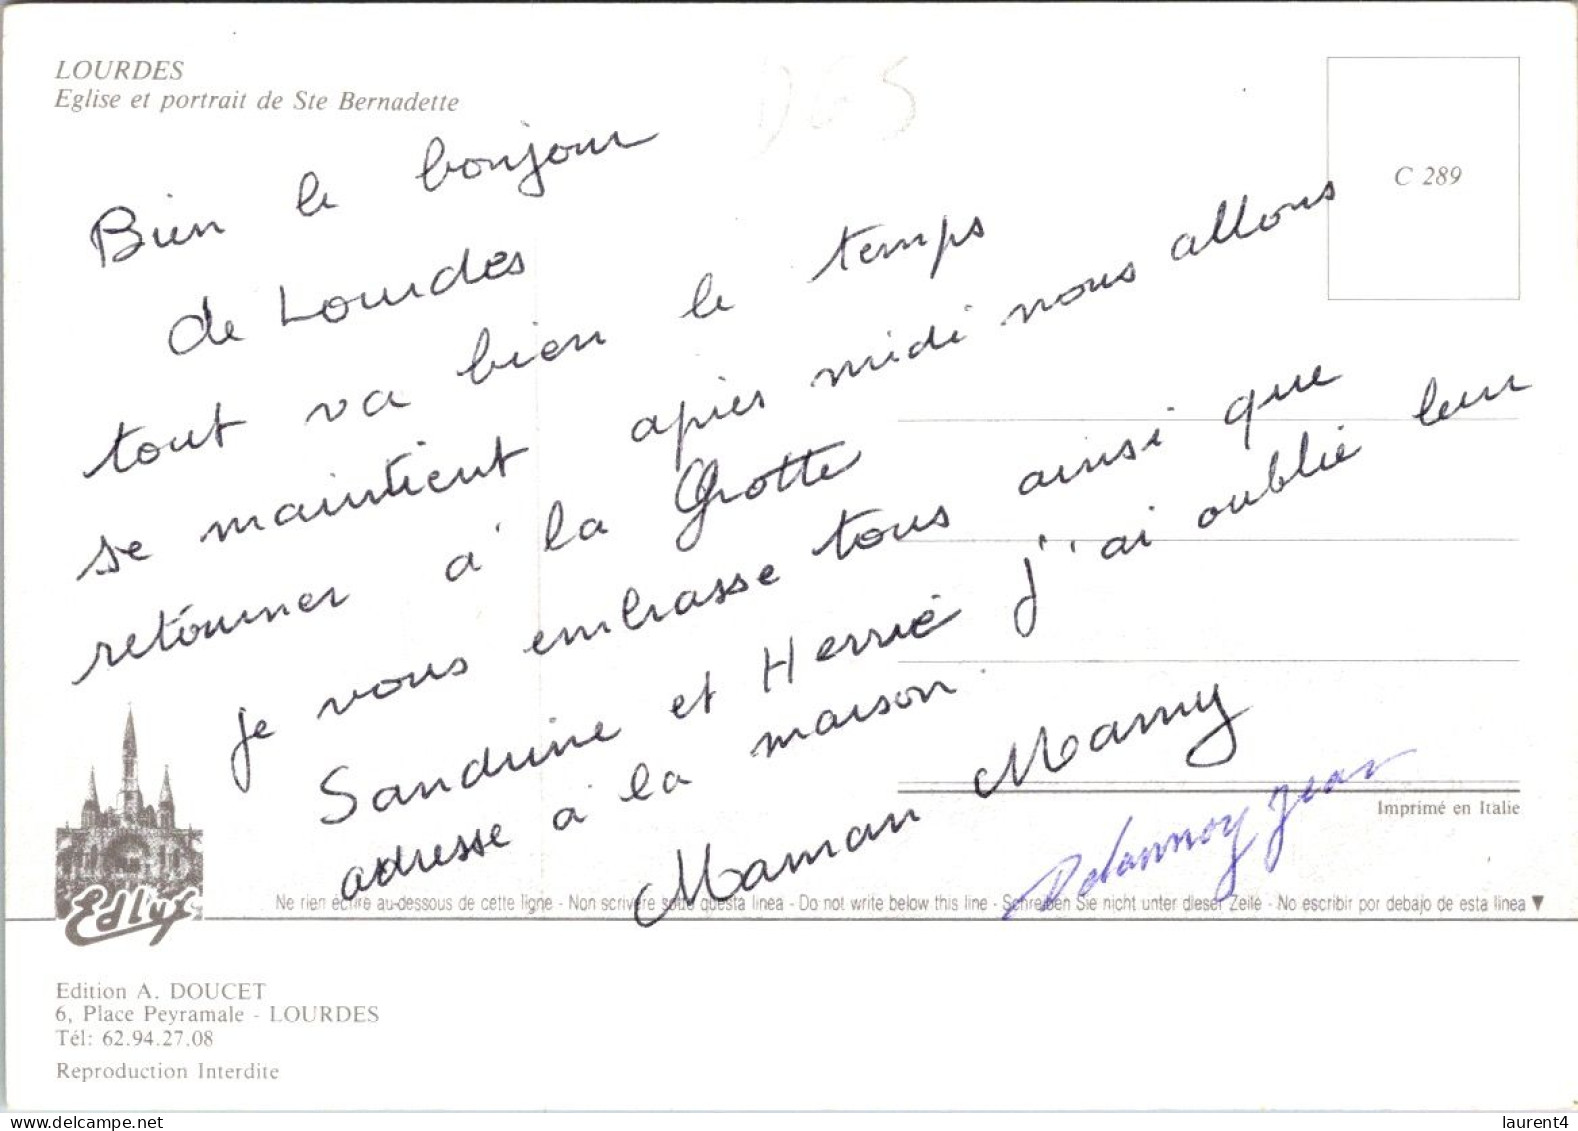 LOURDES
Eglise et portrait de Ste Bernadette
C 289
Bien le bonjour
de Lourdes
tout va bien le temps
se maintient après midi nous allons
retourner à la Grotte
je vous embrasse tous ainsi que
Sandrine et Hervé j'ai oublié leur
adresse à la maison.
Maman Mamy
Delannoy Jean
Imprimé en Italie
Edlux
Ne rien écrire au-dessous de cette ligne - Non scrivere sotto questa linea - Do not write below this line - Schreiben Sie nicht unter dieser Zeile - No escribir por debajo de esta línea ▼
Edition A. DOUCET
6, Place Peyramale - LOURDES
Tél: 62.94.27.08
Reproduction Interdite
laurent4